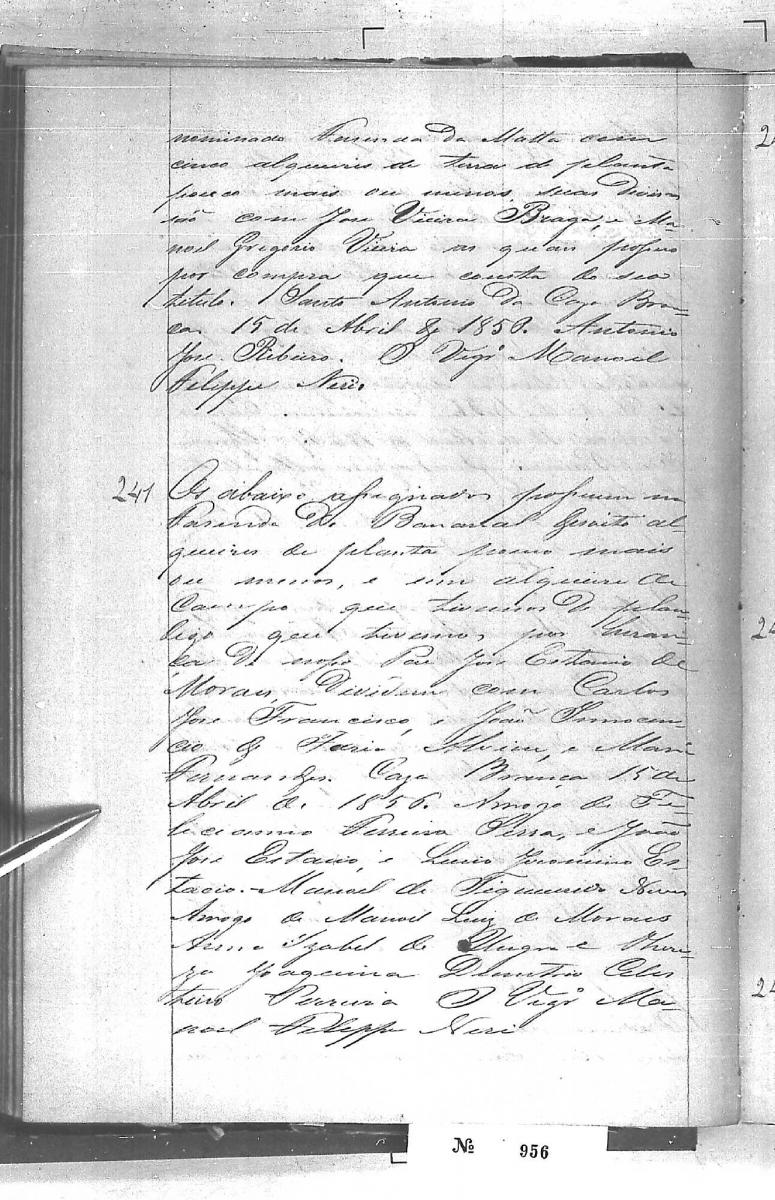 nominado Fazenda da Matta com
cinco alqueiris de terra de planta
pouco mais ou menos, suas divisas
são com Jose Vieira Braga, e Ma-
noel Gregorio Vieira as quais pussuo
por compra que consta do seo
titulo. Santo Antonio da Caza Bran-
ca 15 de Abril de 1856. Antonio
Jose Ribeiro. O Vigro Manoel
Felippe Neri.
241
Os abaixo assignados possuem na
Fazenda do Bananal dezoito al-
queires de planta pouco mais
ou menos, e um alqueire de
Campo que tivemos de
digo que tivemos por heran-
ca de nosso Pai Jose Estacio de
Morais, Dividem com Carlos
Jose Francisco, e João Innocen-
cio de Faria e
Fernandes. Caza Branca 15 de
Abril de 1856. Arrogo de Fe-
liceanno Ferreira Serra, e João
Jose Estacio, e Lucio Jeronimo Es-
tacio. Manoel de Figueiredo Neves
Arrogo de Manoel Luiz de Moraes
Anna Izabel de e There-
za Joaquina Demetrio Celes
tino Ferreira O Vigro Ma-
noel Felippe Neri
24
24
24
№ 956